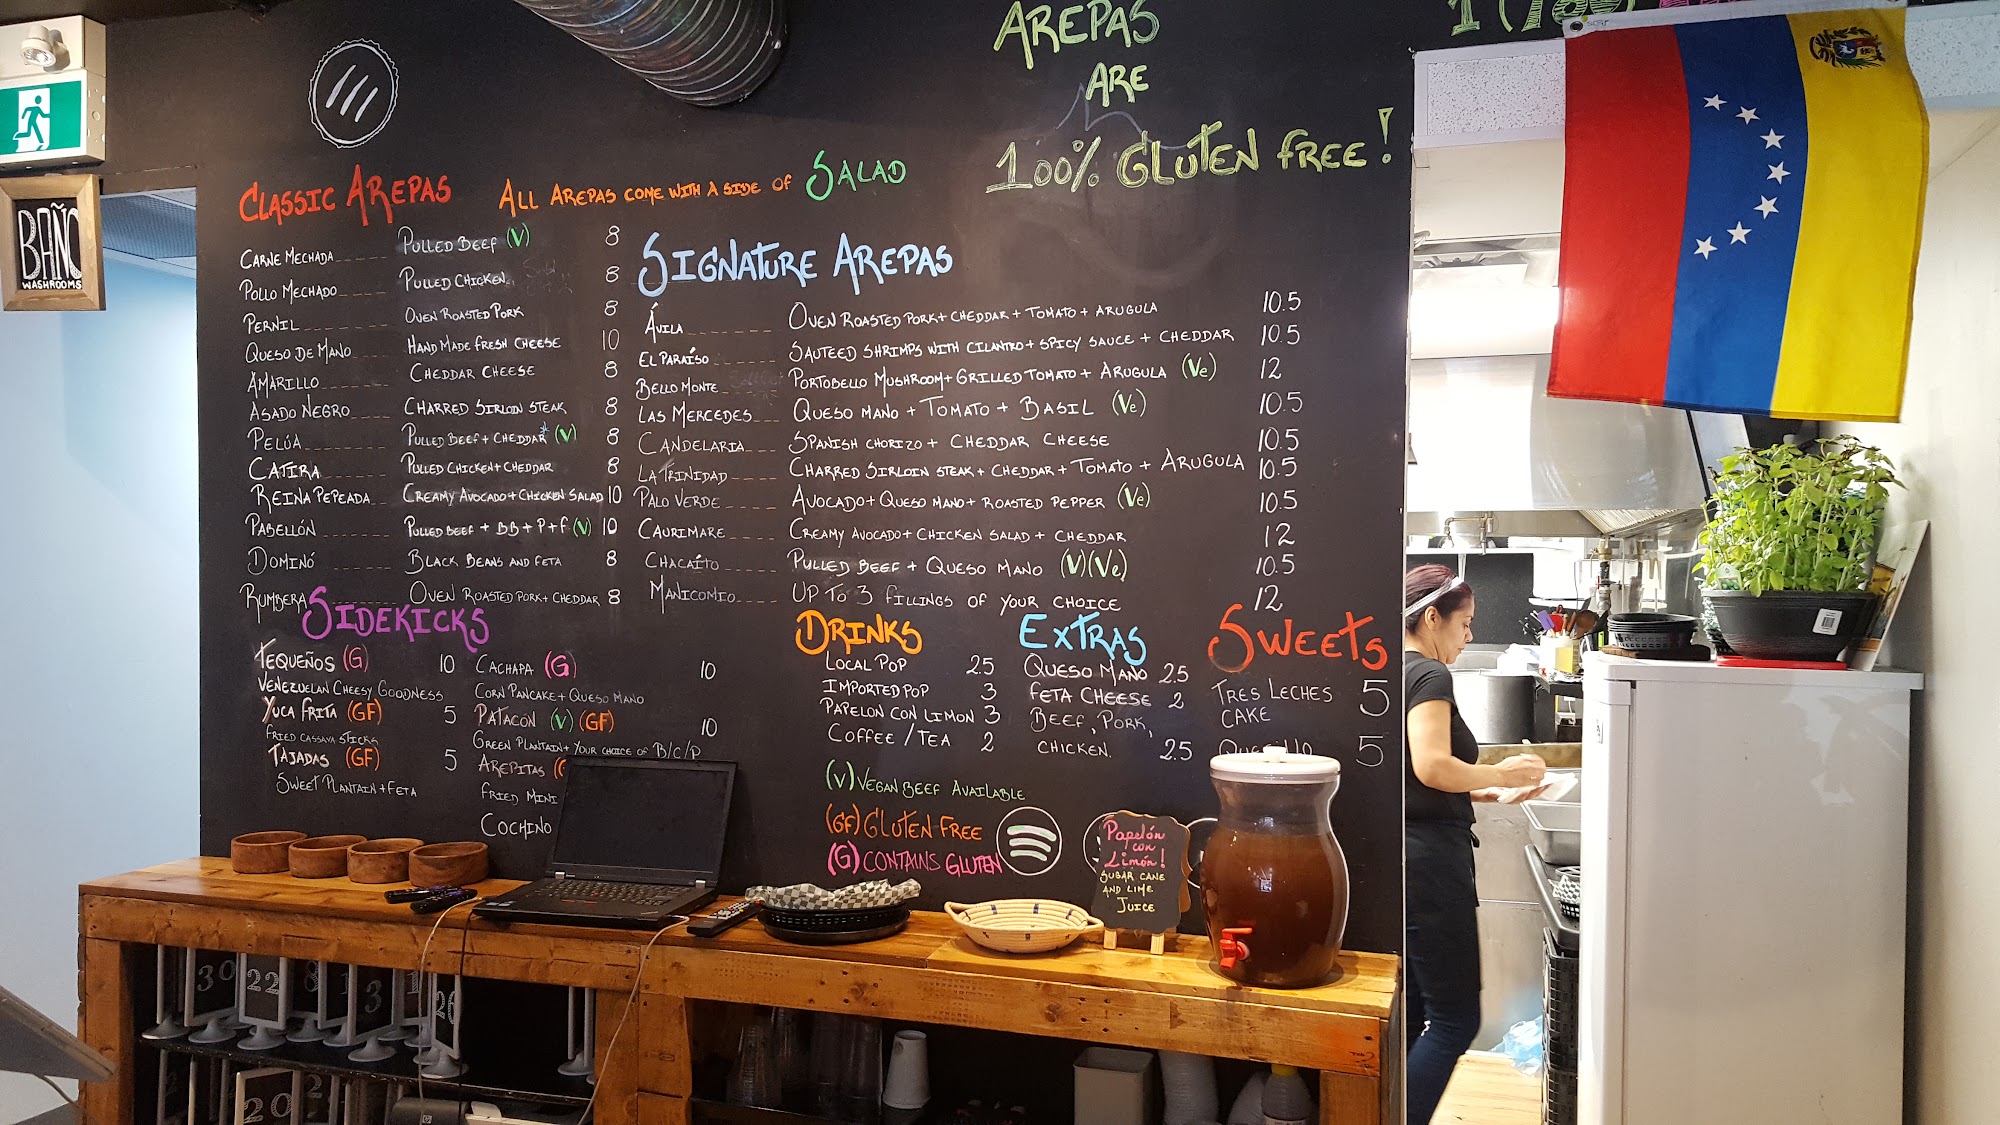 AREPAS
ARE
100% GLUTEN FREE!
BAÑO
WASHROOMS
CLASSIC AREPAS
ALL AREPAS COME WITH A SIDE OF SALAD
CARNE MECHADA PULLED BEEF (V) 8
POLLO MECHADO PULLED CHICKEN 8
PERNIL OVEN ROASTED PORK 8
QUESO DE MANO HAND MADE FRESH CHEESE 10
AMARILLO CHEDDAR CHEESE 8
ASADO NEGRO CHARRED SIRLOIN STEAK 8
PELÚA PULLED BEEF + CHEDDAR* (V) 8
CATIRA PULLED CHICKEN + CHEDDAR 8
REINA PEPEADA CREAMY AVOCADO + CHICKEN SALAD 10
PABELLÓN PULLED BEEF + BB + P + F (V) 10
DOMINÓ BLACK BEANS AND FETA 8
RUMBERA OVEN ROASTED PORK + CHEDDAR 8
SIGNATURE AREPAS
ÁVILA OVEN ROASTED PORK + CHEDDAR + TOMATO + ARUGULA 10.5
EL PARAÍSO SAUTEED SHRIMPS WITH CILANTRO + SPICY SAUCE + CHEDDAR 10.5
BELLO MONTE PORTOBELLO MUSHROOM + GRILLED TOMATO + ARUGULA (Ve) 12
LAS MERCEDES QUESO MANO + TOMATO + BASIL (Ve) 10.5
CANDELARIA SPANISH CHORIZO + CHEDDAR CHEESE 10.5
LA TRINIDAD CHARRED SIRLOIN STEAK + CHEDDAR + TOMATO + ARUGULA 10.5
PALO VERDE AVOCADO + QUESO MANO + ROASTED PEPPER (Ve) 10.5
CAURIMARE CREAMY AVOCADO + CHICKEN SALAD + CHEDDAR 12
CHACAÍTO PULLED BEEF + QUESO MANO (V)(Ve) 10.5
MANICOMIO UP TO 3 FILLINGS OF YOUR CHOICE 12
SIDEKICKS
TEQUEÑOS (G) 10
VENEZUELAN CHEESY GOODNESS
YUCA FRITA (GF) 5
FRIED CASSAVA STICKS
TAJADAS (GF) 5
SWEET PLANTAIN + FETA
CACHAPA (G) 10
CORN PANCAKE + QUESO MANO
PATACÓN (V) (GF) 10
GREEN PLANTAIN + YOUR CHOICE OF B/C/P
AREPITAS
FRIED MINI
COCHINO
DRINKS
LOCAL POP 2.5
IMPORTED POP 3
PAPELON CON LIMON 3
COFFEE / TEA 2
EXTRAS
QUESO MANO 2.5
FETA CHEESE 2
BEEF, PORK,
CHICKEN. 2.5
SWEETS
TRES LECHES 5
CAKE
5
(V) VEGAN BEEF AVAILABLE
(GF) GLUTEN FREE
(G) CONTAINS GLUTEN
Papelón
con
Limón!
SUGAR CANE
AND LIME
JUICE
30
22
8
3
1
26
20